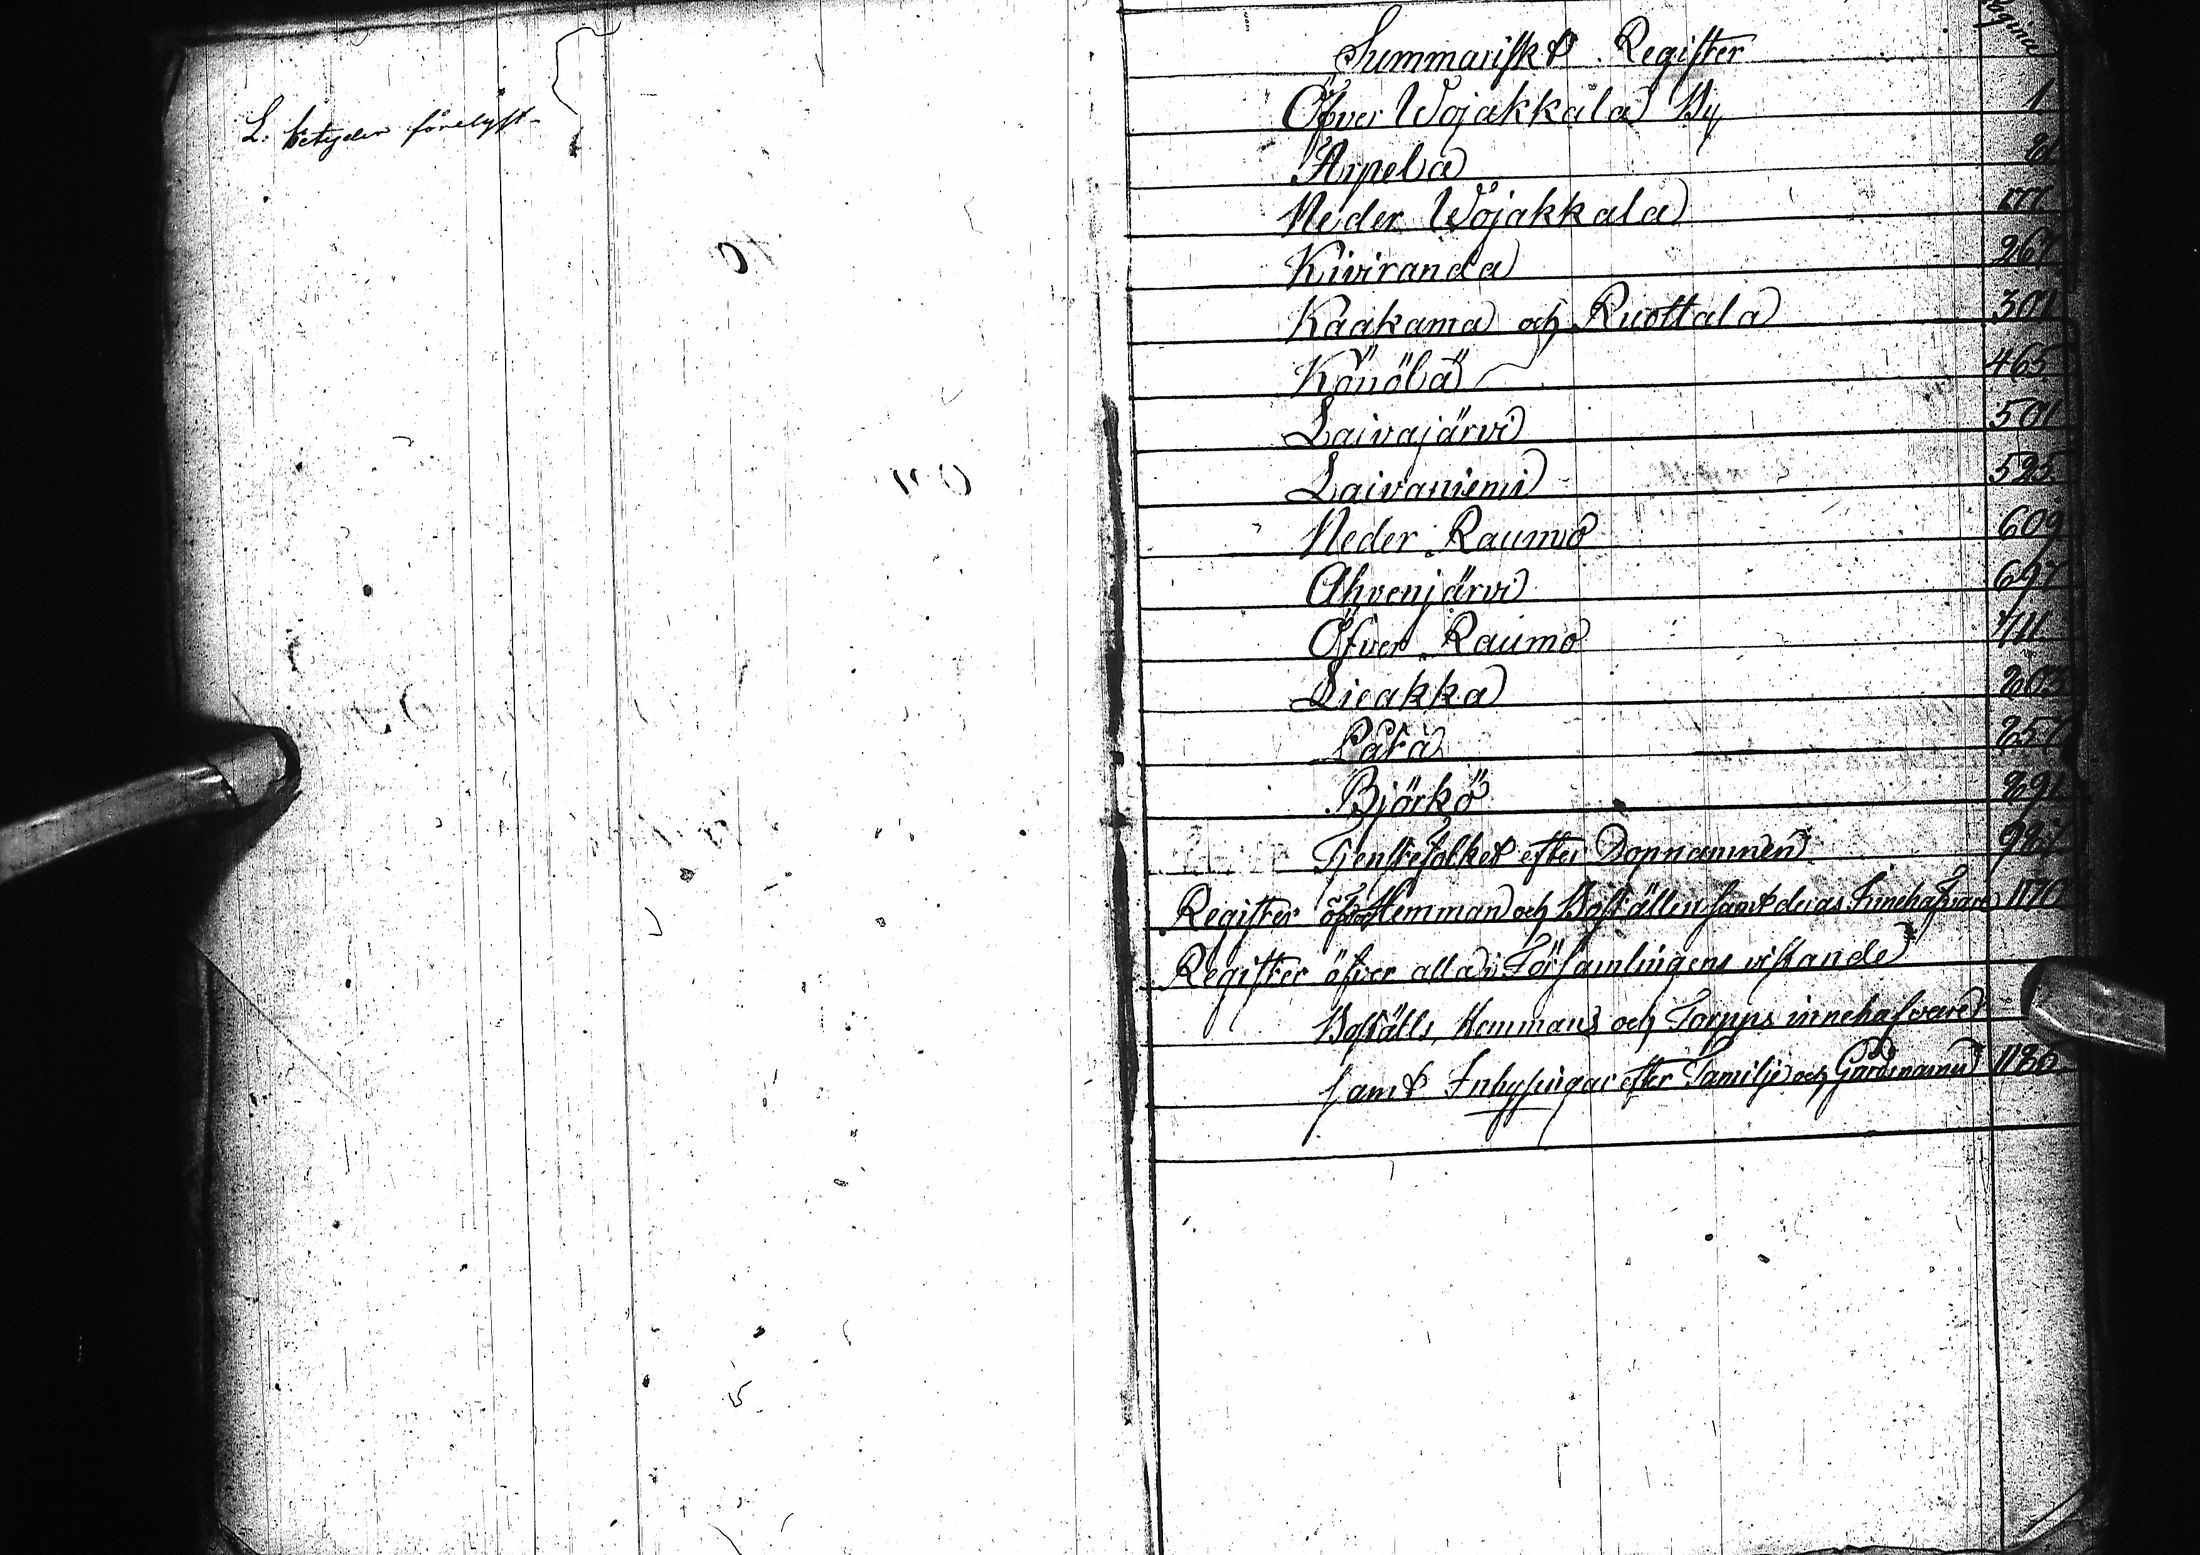 L: betyder förelyst
Pagina
Summariskt Register
Öfver Wojakkala By 1
Arpela 81
Neder Wojakkala 177
Kiviranda 267
Kaakama och Ruottala 301
Könölä 465
Laivajärvi 501
Laivaniemi 525
Neder Raumo 609
Ahvenjärvi 697
Öfver Raumo 711
Liеakka 803
Pätä 857
Björkö 891
Tjenstefolket efter Dopnamnen 987
Register öfver Hemman och Boställen samt deras Innehafvare 1176
Register öfver alla i Församlingens vistande
Boställs, Hemmans och Torpps innehafvare
samt Inhysingar efter Familje och Gårdsnamn 1186